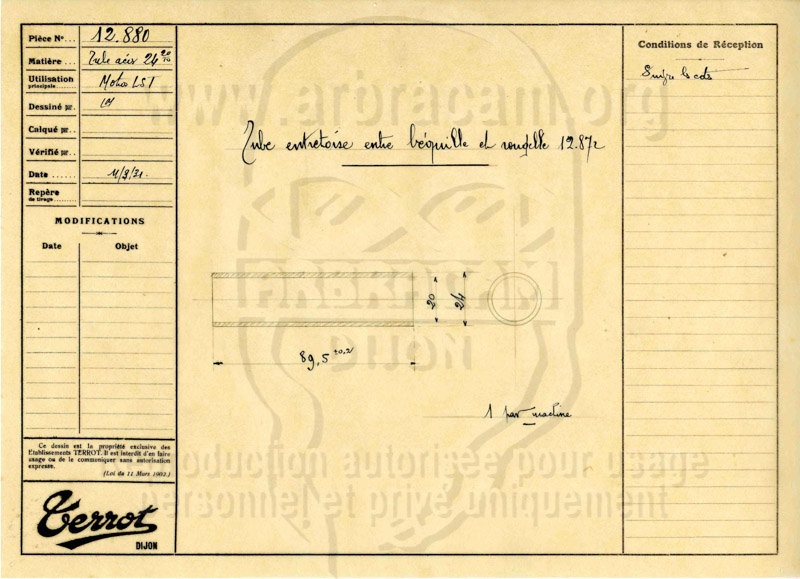 Pièce N° ... 12.880
Matière ... Tube acier 24 20/10
Utilisation principale ... Motos LST
Dessiné par.
Calqué par ..
Vérifié par ...
Date ...... 11/9/31.
Repère de tirage ........
MODIFICATIONS
Date Objet
Ce dessin est la propriété exclusive des
Etablissements TERROT. Il est interdit d'en faire
usage ou de le communiquer sans autorisation
expresse.
(Loi du 11 Mars 1902.)
Terrot
DIJON
www.arbracam.org
Tube entretoise entre béquille et rondelle 12.872
ARBRACAM
DIJON
20
24
89,5 ±0,2
1 par machine
Reproduction autorisée pour usage
personnel et privé uniquement
Conditions de Réception